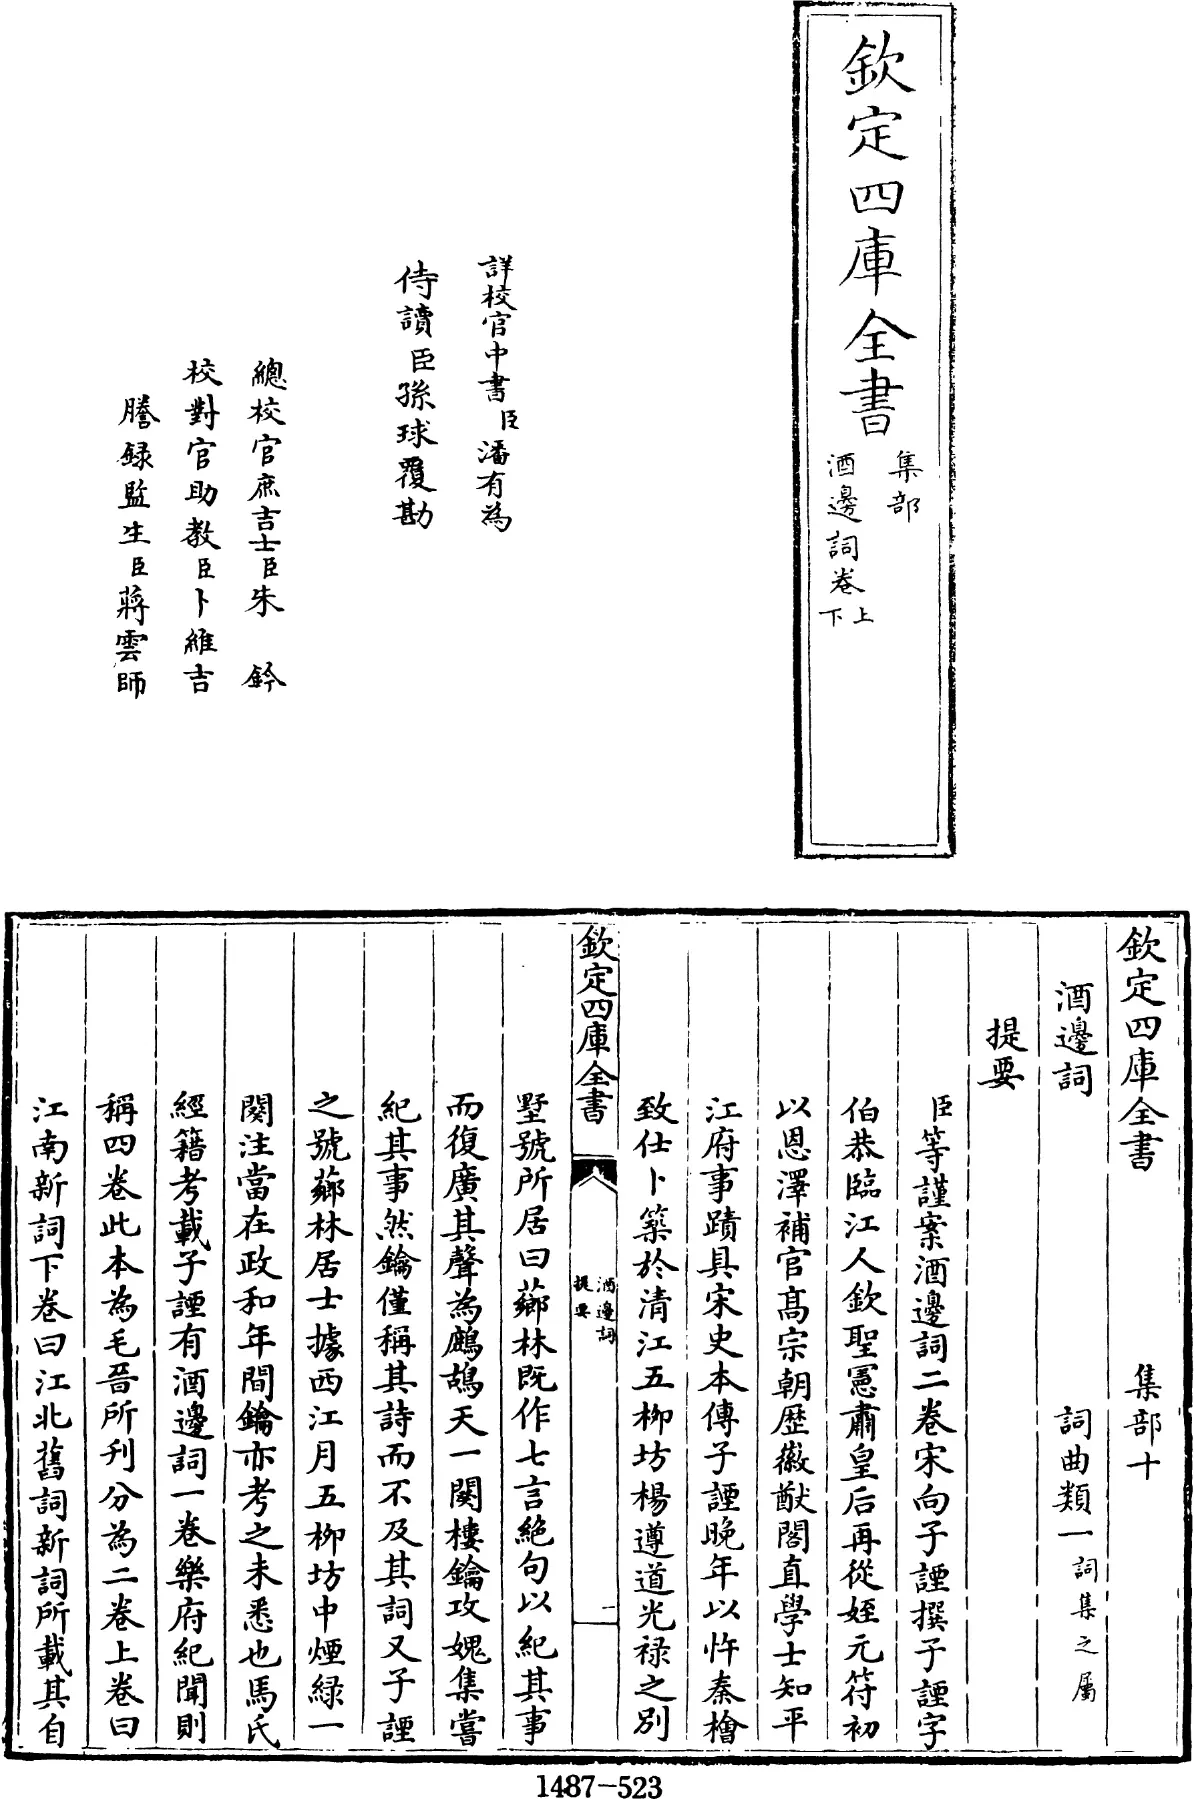 欽定四庫全書
集部
酒邊詞卷上下
詳校官中書臣潘有為
侍讀臣孫球覆勘
總校官庶吉士臣朱鈐
校對官助教臣卜維吉
謄録監生臣蔣雲師
欽定四庫全書 集部十
酒邊詞 詞曲類一詞集之屬
提要
臣等謹案酒邊詞二卷宋向子諲撰子諲字
伯恭臨江人欽聖憲肅皇后再從姪元符初
以恩澤補官髙宗朝歴徽猷閣直學士知平
江府事蹟具宋史本傳子諲晚年以忤秦檜
致仕卜築於清江五柳坊楊遵道光禄之别
欽定四庫全書
酒邊詞
提要
一
墅號所居曰薌林既作七言絶句以紀其事
而復廣其聲為鷓鴣天一闋樓鑰攻媿集嘗
紀其事然鑰僅稱其詩而不及其詞又子諲
之號薌林居士據西江月五柳坊中煙緑一
闋注當在政和年間鑰亦考之未悉也馬氏
經籍考載子諲有酒邊詞一卷樂府紀聞則
稱四卷此本為毛晉所刊分為二卷上卷曰
江南新詞下卷曰江北舊詞新詞所載其自
1487-523